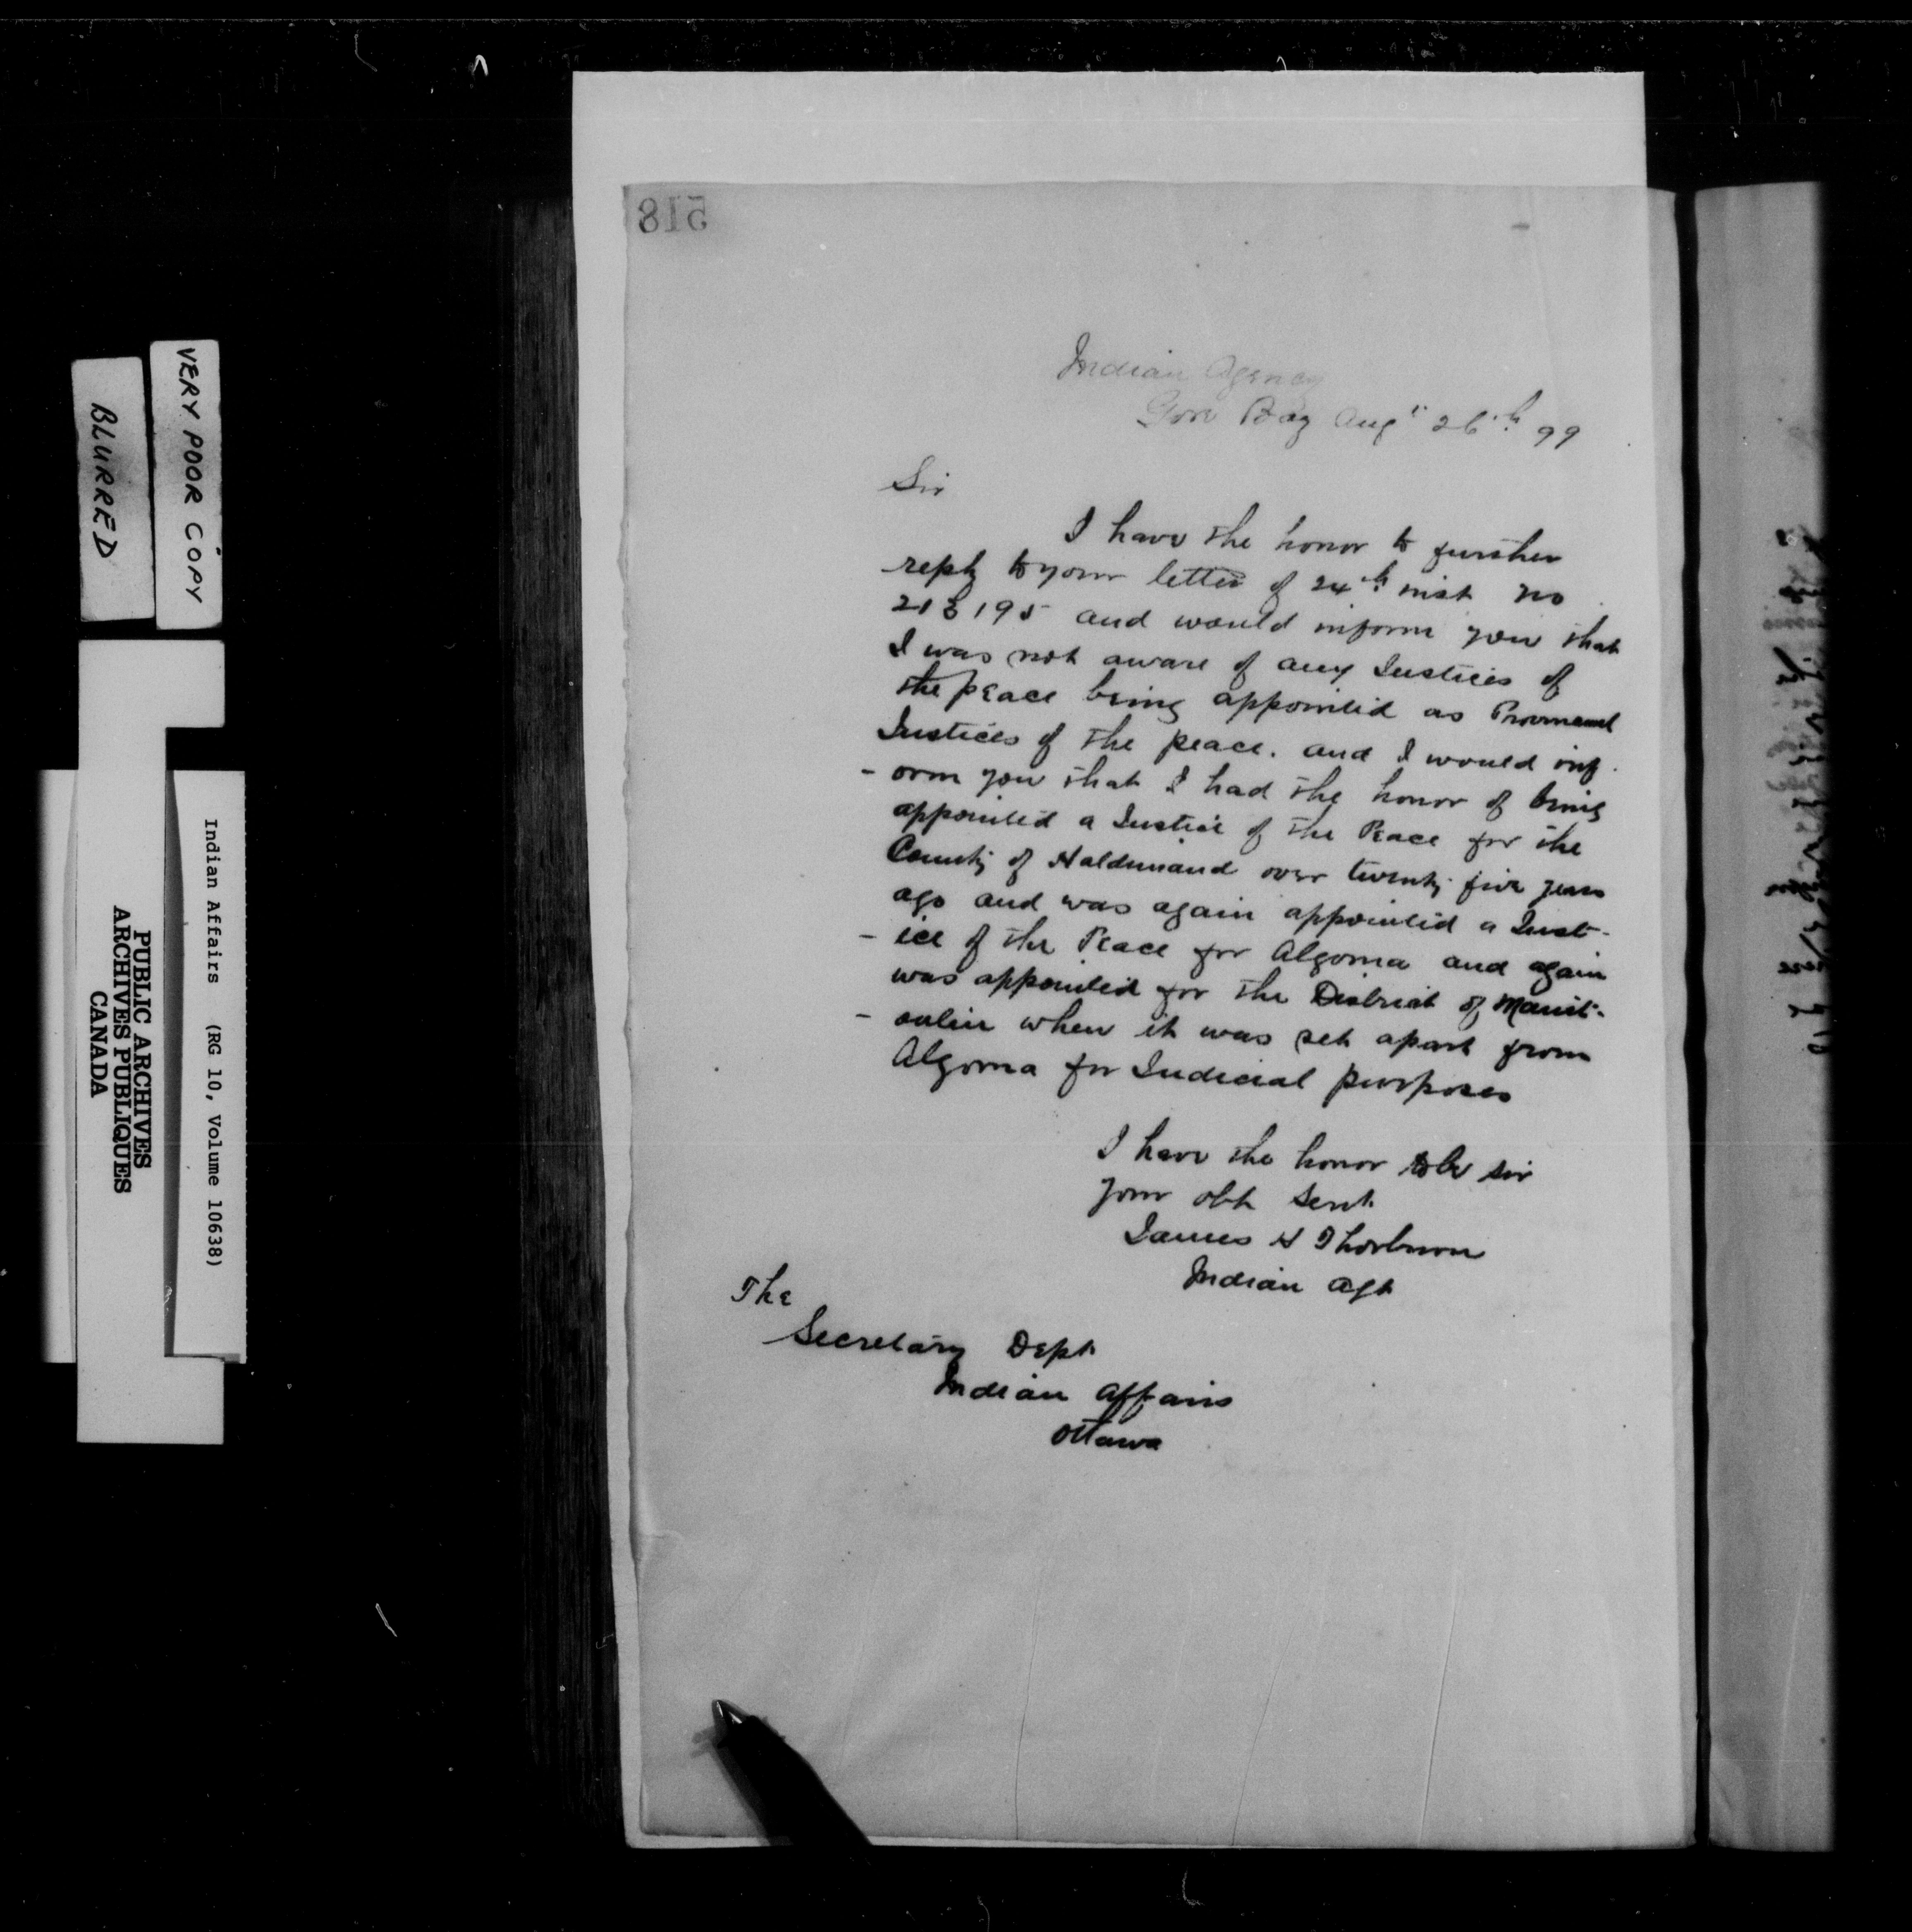 518
Indian Agency
Gore Bay Augt 26th 99
Sir
I have the honor to further
reply to your letter of 24th inst no
213195 and would inform you that
I was not aware of any Justices of
the peace being appointed as Provincial
Justices of the peace. and I would inf
- orm you that I had the honor of being
appointed a Justice of the Peace for the
County of Haldimand over twenty five years
ago and was again appointed a Just-
- ice of the Peace for Algoma and again
was appointed for the District of Manit-
- oulin when it was set apart from
Algoma for Judicial purposes
I have the honor to be sir
your obt Servt
James H Thorburn
Indian Agt
The
Secretary Dept
Indian Affairs
Ottawa
VERY POOR COPY
BLURRED
Indian Affairs (RG 10, Volume 10638)
PUBLIC ARCHIVES
ARCHIVES PUBLIQUES
CANADA